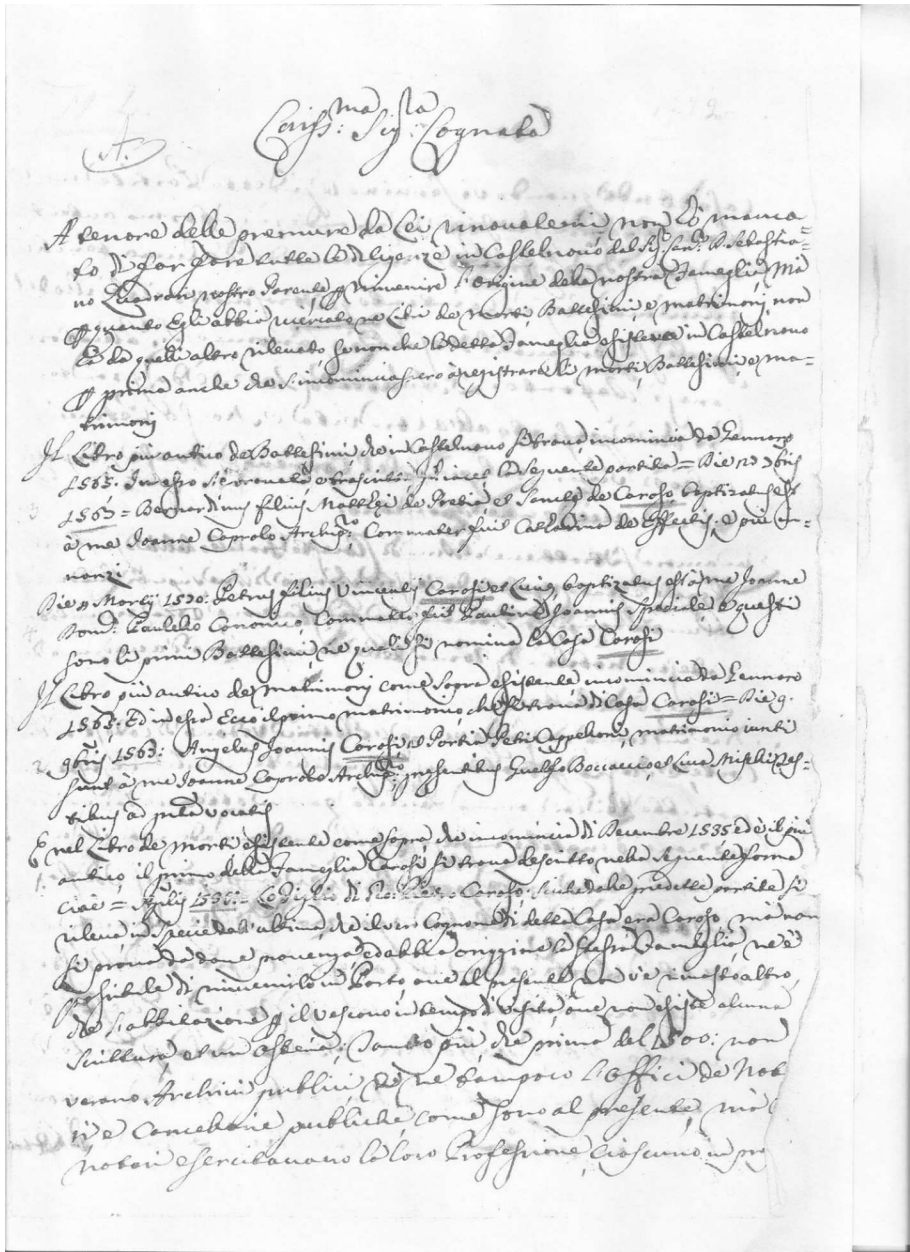 Cariss:ma Sig:ra Cognata
A.
A tenore delle premure da Lei rinovatemi non hò manca=
to di far fare tutte le diligenze in Castelnovo dal Sig: D. Sebastia=
no Quadrari nostro Parente p rinvenire l'origine della nostra Fameglia Mà
p quanto Egli abbia ricercato ne Libri de morti Battesimi, e matrimonj non
hà da quelli altro rilevato se non che la detta Fameglia esisteva in Castelnovo
p prima anche che s'incominciassero à registrare li morti, Battesimi e ma=
trimonj
Il Libro più antico de Battesimi che in Castelnovo si trovi, incomincia da Gennaro
1563. In esso si è trovata e trascritta la seguente partita = Die 9bris
1563 = Bernardinus filius Matthei de et Sanctes de Caroso baptizatus est
à me Joanne Caprolo Archip:ro Commater fuit Catharina de Effectis, e più in=
nanzi
Die Martij 1570: Petrus filius Vincentij Carosi et baptizatus est à me Joanne
Dom: Paulello Canonico Commater fuit Joannis e questi
sono li primi Battesimi, ne quali si nomina la Casa Carosi
Il Libro più antico de matrimonj come sopra esistente incomincia da Gennaro
1563. Ed in esso Ecco il primo matrimonio che si trova di Casa Carosi = Die 9.
9bris 1563: Angelus Joannis Carosi et Portia Petri Cappelloni, matrimonio iuncti
sunt à me Joanne Caprolo Archip:ro presentibus Boccaccio, et Luca tes=
tibus ad vocatis
E nel Libro de morti esistente come sopra che incomincia di Decembre 1535 ed è il più
antico, il primo della Fameglia Carosi si trova descritto nella seguente forma
cioè = Aprilis 1536 = Lo figlio di Caroso; siche dalle predette partite si
rileva in specie dall'ultima, che il vero Cognome di detta Casa era Caroso, mà non
si prova da dove provenga ed abbia origgine la stessa Fameglia, ne è
possibile di rinvenirlo in Porto ove al presente non v'è rimasto altro,
che l'abbitazione p il Vescovo in tempo di visita, ove non esiste alcuna
scrittura, et un Osteria; Tanto più che prima del 1500: non
verano Archivj publici, ne tampoco l'officj de Not
ri e Cancellarie publiche come sono al presente, mà
notari esercitavano la loro Professione ciascuno in